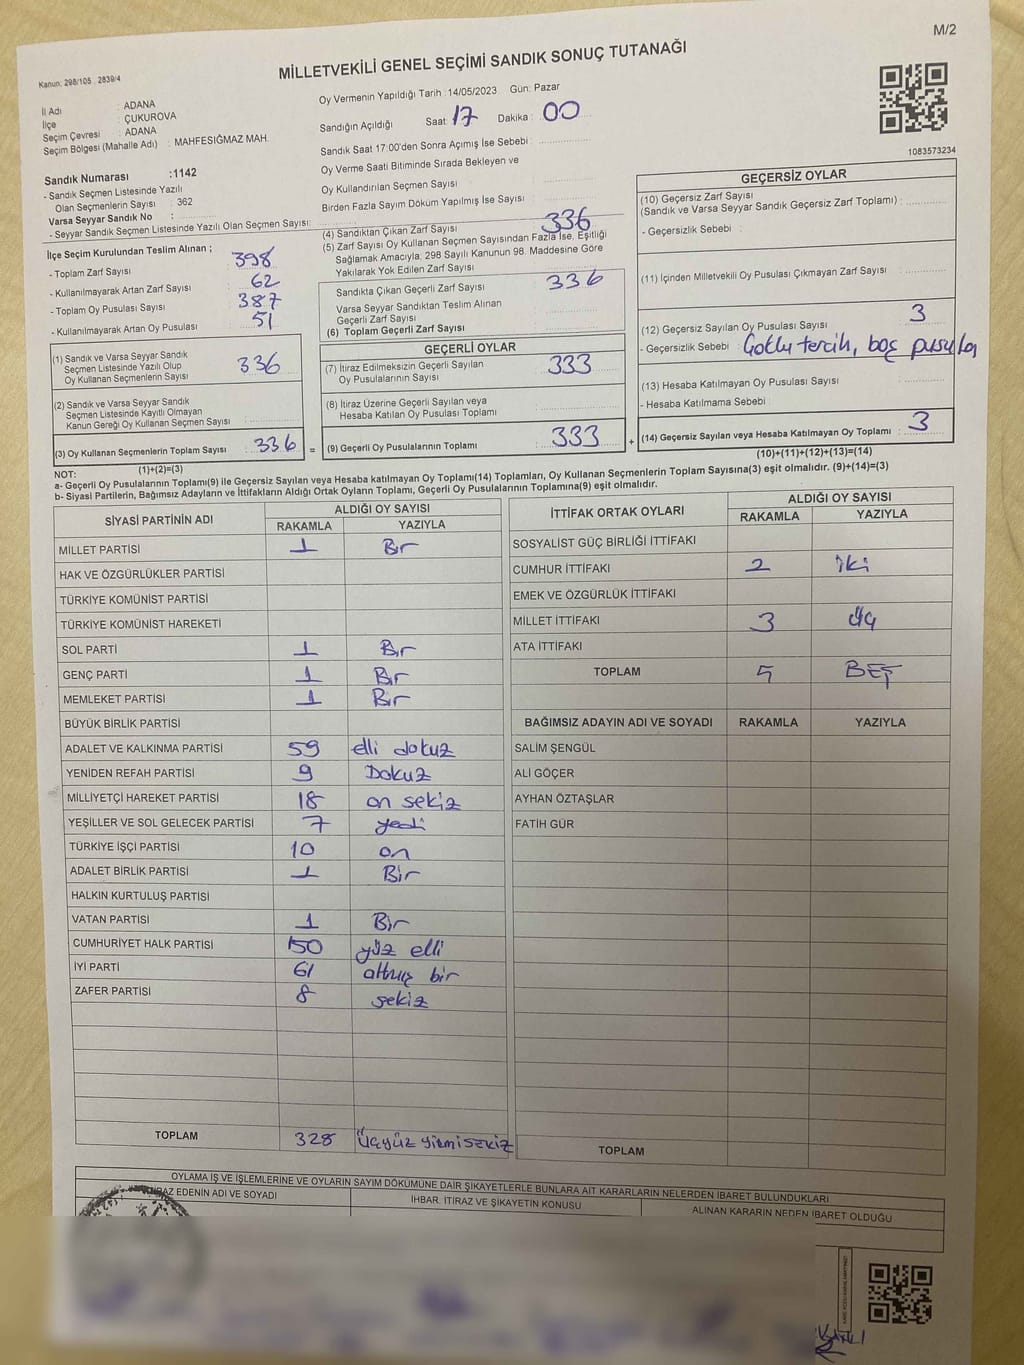 M/2
MİLLETVEKİLİ GENEL SEÇİMİ SANDIK SONUÇ TUTANAĞI
Kanun: 298/105 . 2839/4
İl Adı : ADANA
İlçe : ÇUKUROVA
Seçim Çevresi : ADANA
Seçim Bölgesi (Mahalle Adı) : MAHFESIĞMAZ MAH.
Sandık Numarası :1142
- Sandık Seçmen Listesinde Yazılı
Olan Seçmenlerin Sayısı : 362
Varsa Seyyar Sandık No :
- Seyyar Sandık Seçmen Listesinde Yazılı Olan Seçmen Sayısı:
Oy Vermenin Yapıldığı Tarih : 14/05/2023 Gün: Pazar
Sandığın Açıldığı Saat: 17 Dakika : 00
Sandık Saat 17:00'den Sonra Açımış İse Sebebi :
Oy Verme Saati Bitiminde Sırada Bekleyen ve
Oy Kullandırılan Seçmen Sayısı
Birden Fazla Sayım Döküm Yapılmış İse Sayısı :
1083573234
İlçe Seçim Kurulundan Teslim Alınan ;
- Toplam Zarf Sayısı : 398
- Kullanılmayarak Artan Zarf Sayısı : 62
- Toplam Oy Pusulası Sayısı : 387
- Kullanılmayarak Artan Oy Pusulası : 51
(1) Sandık ve Varsa Seyyar Sandık
Seçmen Listesinde Yazılı Olup
Oy Kullanan Seçmenlerin Sayısı : 336
(2) Sandık ve Varsa Seyyar Sandık
Seçmen Listesinde Kayıtlı Olmayan
Kanun Gereği Oy Kullanan Seçmen Sayısı :
(3) Oy Kullanan Seçmenlerin Toplam Sayısı : 336 =
(1)+(2)=(3)
(4) Sandıktan Çıkan Zarf Sayısı : 336
(5) Zarf Sayısı Oy Kullanan Seçmen Sayısından Fazla İse, Eşitliği
Sağlamak Amacıyla; 298 Sayılı Kanunun 98. Maddesine Göre
Yakılarak Yok Edilen Zarf Sayısı :
Sandıkta Çıkan Geçerli Zarf Sayısı : 336
Varsa Seyyar Sandıktan Teslim Alınan
Geçerli Zarf Sayısı :
(6) Toplam Geçerli Zarf Sayısı :
GEÇERLİ OYLAR
(7) İtiraz Edilmeksizin Geçerli Sayılan
Oy Pusulalarının Sayısı : 333
(8) İtiraz Üzerine Geçerli Sayılan veya
Hesaba Katılan Oy Pusulası Toplamı :
(9) Geçerli Oy Pusulalarının Toplamı : 333 +
GEÇERSİZ OYLAR
(10) Geçersiz Zarf Sayısı
(Sandık ve Varsa Seyyar Sandık Geçersiz Zarf Toplamı) :
- Geçersizlik Sebebi :
(11) İçinden Milletvekili Oy Pusulası Çıkmayan Zarf Sayısı :
(12) Geçersiz Sayılan Oy Pusulası Sayısı : 3
- Geçersizlik Sebebi : Çoklu tercih, boş pusula
(13) Hesaba Katılmayan Oy Pusulası Sayısı :
- Hesaba Katılmama Sebebi :
(14) Geçersiz Sayılan veya Hesaba Katılmayan Oy Toplamı : 3
(10)+(11)+(12)+(13)=(14)
NOT:
a- Geçerli Oy Pusulalarının Toplamı(9) ile Geçersiz Sayılan veya Hesaba katılmayan Oy Toplamı(14) Toplamları, Oy Kullanan Seçmenlerin Toplam Sayısına(3) eşit olmalıdır. (9)+(14)=(3)
b- Siyasi Partilerin, Bağımsız Adayların ve İttifakların Aldığı Ortak Oyların Toplamı, Geçerli Oy Pusulalarının Toplamına(9) eşit olmalıdır.
SİYASİ PARTİNİN ADI ALDIĞI OY SAYISI
RAKAMLA YAZIYLA
MİLLET PARTİSİ 1 Bir
HAK VE ÖZGÜRLÜKLER PARTİSİ
TÜRKİYE KOMÜNİST PARTİSİ
TÜRKİYE KOMÜNİST HAREKETİ
SOL PARTİ 1 Bir
GENÇ PARTİ 1 Bir
MEMLEKET PARTİSİ 1 Bir
BÜYÜK BİRLİK PARTİSİ
ADALET VE KALKINMA PARTİSİ 59 elli dokuz
YENİDEN REFAH PARTİSİ 9 Dokuz
MİLLİYETÇİ HAREKET PARTİSİ 18 on sekiz
YEŞİLLER VE SOL GELECEK PARTİSİ 7 yedi
TÜRKİYE İŞÇİ PARTİSİ 10 on
ADALET BİRLİK PARTİSİ 1 Bir
HALKIN KURTULUŞ PARTİSİ
VATAN PARTİSİ 1 Bir
CUMHURİYET HALK PARTİSİ 150 yüz elli
İYİ PARTİ 61 altmış bir
ZAFER PARTİSİ 8 sekiz
TOPLAM 328 Üçyüz yirmisekiz
İTTİFAK ORTAK OYLARI ALDIĞI OY SAYISI
RAKAMLA YAZIYLA
SOSYALİST GÜÇ BİRLİĞİ İTTİFAKI
CUMHUR İTTİFAKI 2 iki
EMEK VE ÖZGÜRLÜK İTTİFAKI
MİLLET İTTİFAKI 3 üç
ATA İTTİFAKI
TOPLAM 5 BEŞ
BAĞIMSIZ ADAYIN ADI VE SOYADI RAKAMLA YAZIYLA
SALİM ŞENGÜL
ALİ GÖÇER
AYHAN ÖZTAŞLAR
FATİH GÜR
TOPLAM
OYLAMA İŞ VE İŞLEMLERİNE VE OYLARIN SAYIM DÖKÜMÜNE DAİR ŞİKAYETLERLE BUNLARA AİT KARARLARIN NELERDEN İBARET BULUNDUKLARI
EDENİN ADI VE SOYADI İHBAR, İTİRAZ VE ŞİKAYETİN KONUSU ALINAN KARARIN NEDEN İBARET OLDUĞU